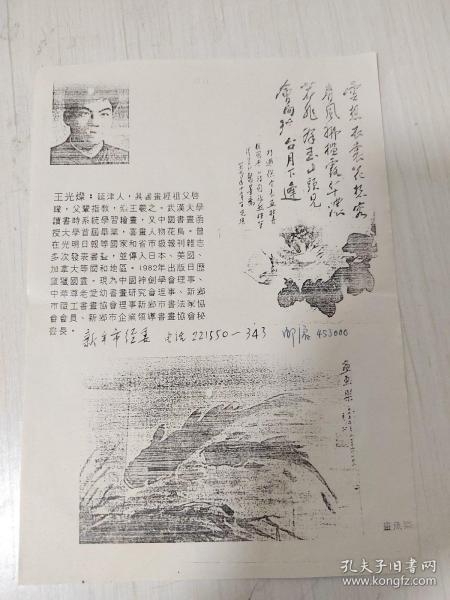 雲想衣裳花想容
春風拂檻露華濃
若非群玉山頭見
會向瑤台月下逢
王光燦：延津人，其書畫經祖父啓
蒙，父輩指教，拟王羲之。武漢大學
讀書時系統學習繪畫，又中國書畫函
授大學首屆畢業，喜畫人物花鳥。曾
在光明日報等國家和省市級報刊雜志
多次發表書畫，並傳入日本、美國、
加拿大等國和地區。1982年出版日歷
中華尊老愛幼書畫研究會理事、新鄉
市職工書畫協會理事新鄉市書法家協
會會員、新鄉市企業領導書畫協會秘
書長。
新乡市经委 电话 221550-343 邮编 453000
畫魚樂
孔夫子旧书网
book.kongfz.com